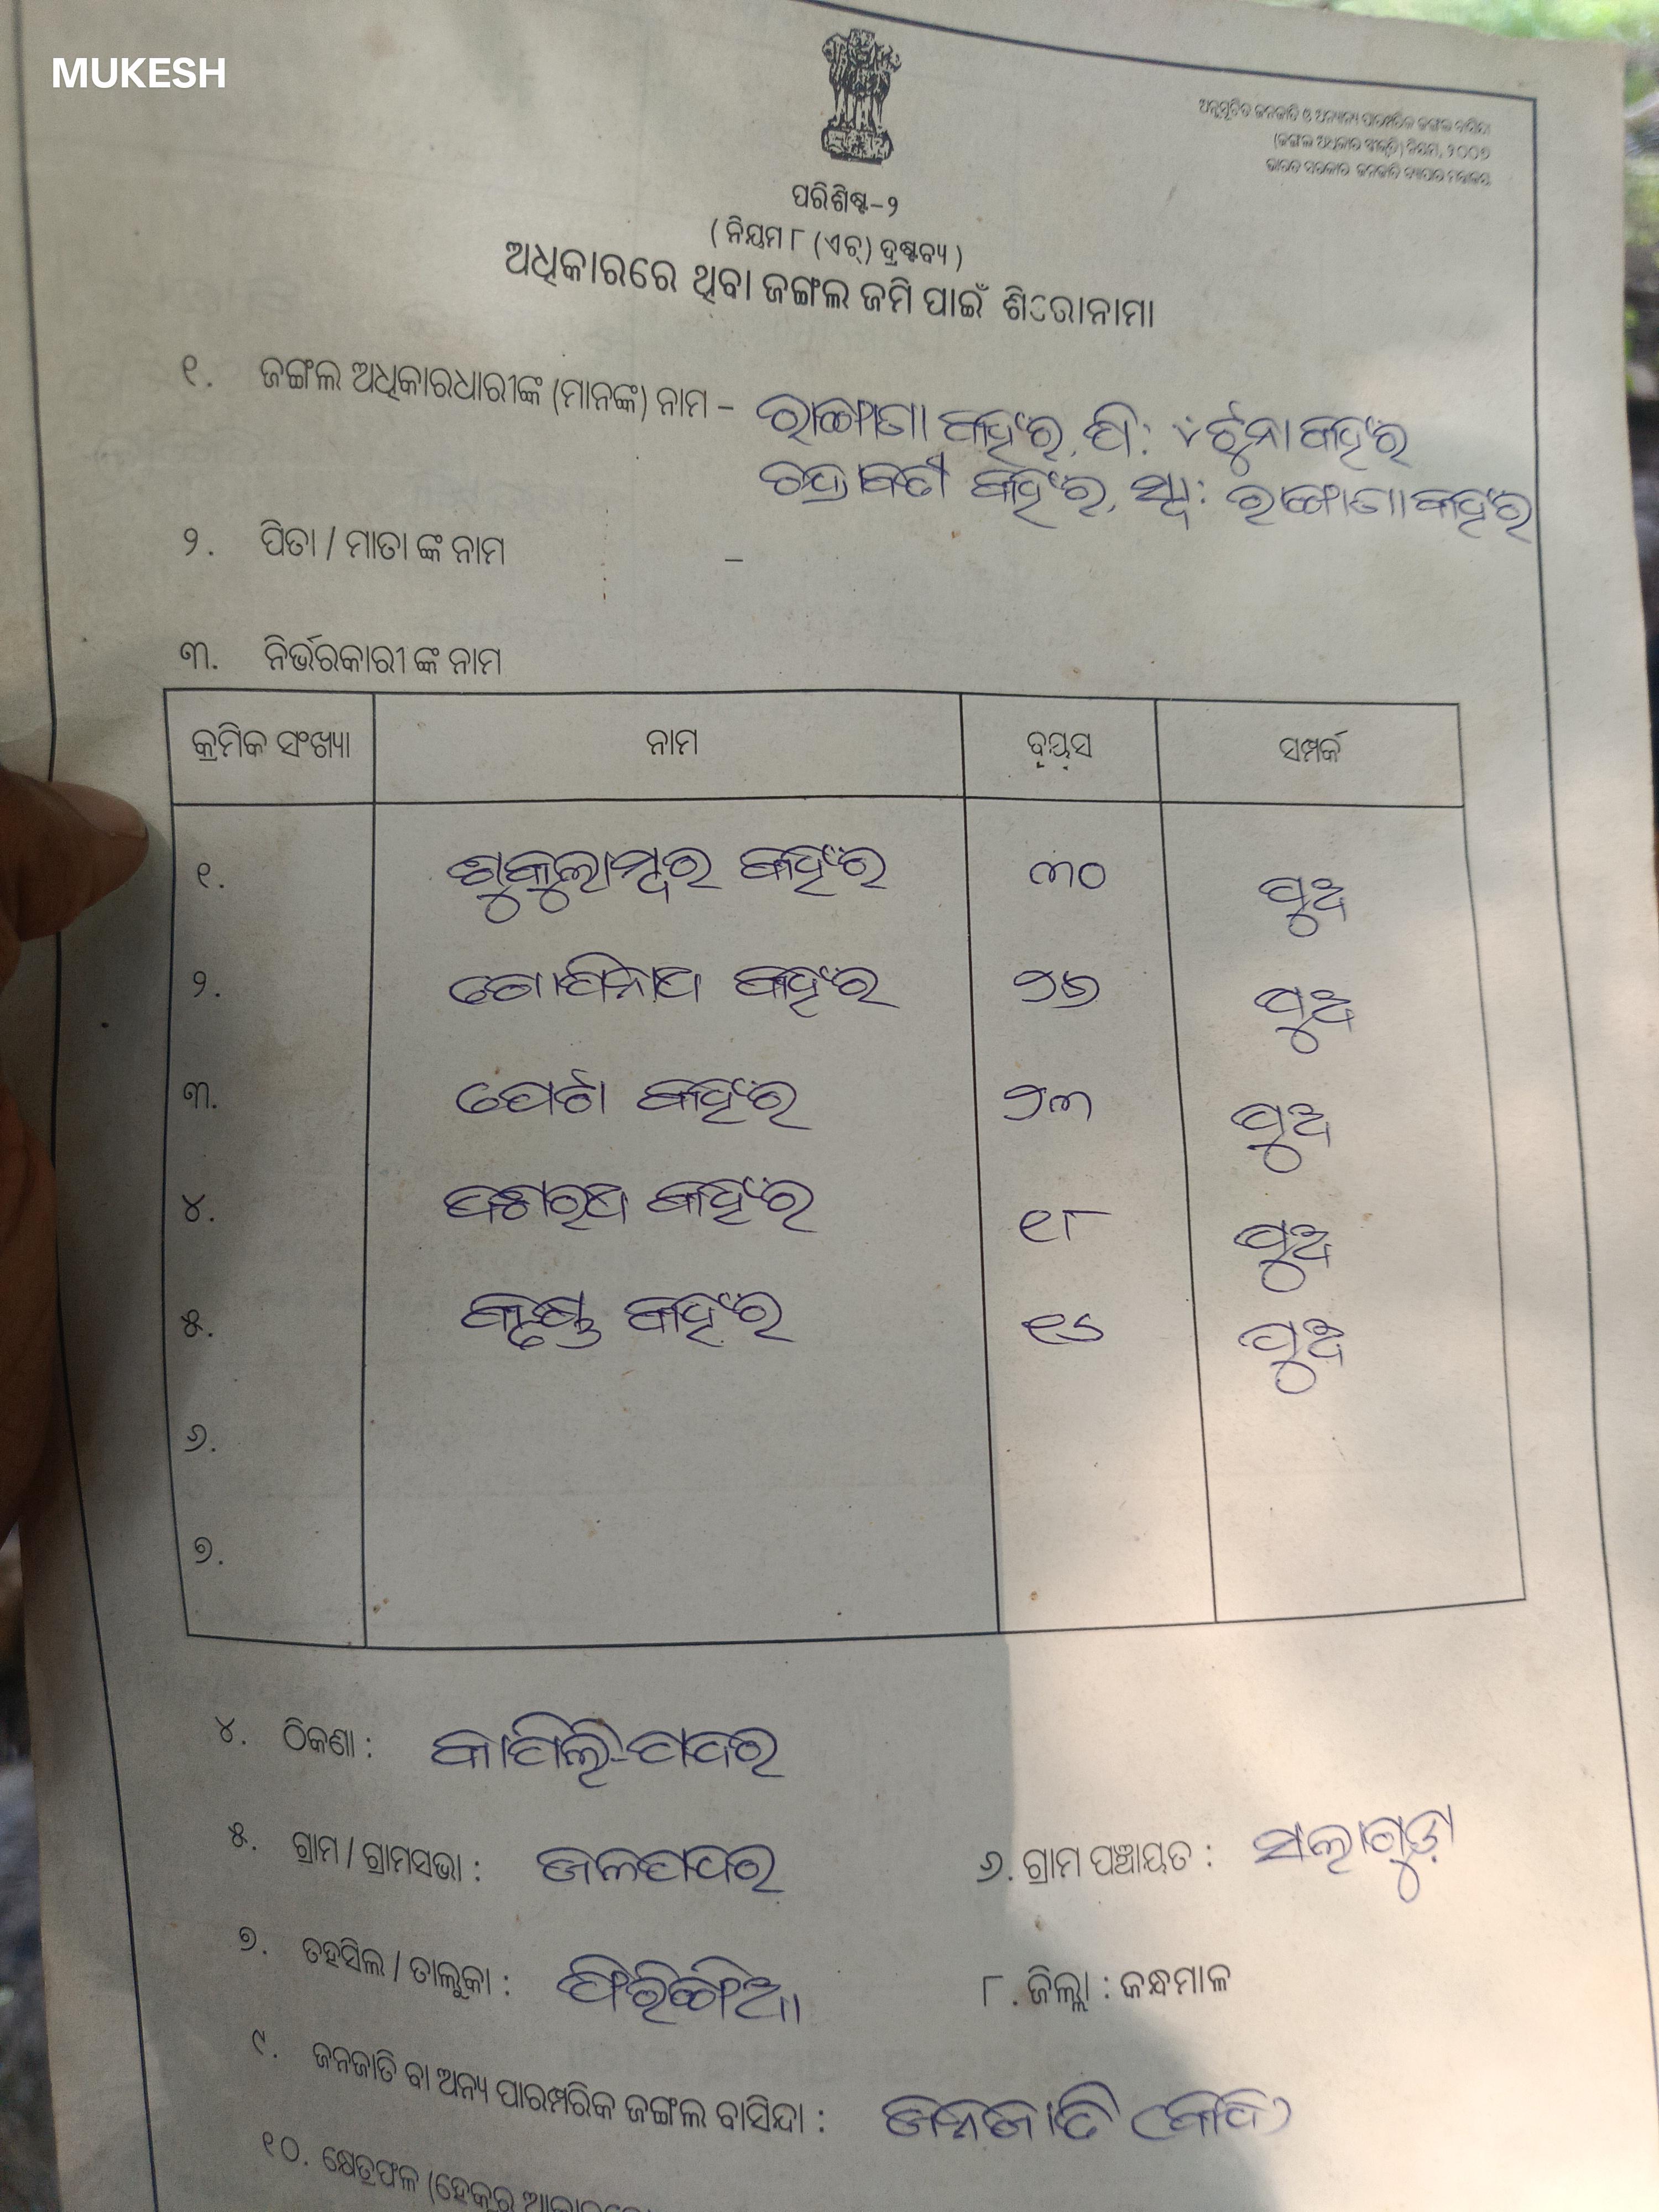 MUKESH
ଅନୁସୂଚିତ ଜନଜାତି ଓ ଅନ୍ୟାନ୍ୟ ପାରମ୍ପରିକ ଜଙ୍ଗଲ ବାସିନ୍ଦା
(ଜଙ୍ଗଲ ଅଧିକାର ସ୍ୱୀକୃତି) ନିୟମ, ୨୦୦୭
ଭାରତ ସରକାର ଜନଜାତି ବ୍ୟାପାର ମନ୍ତ୍ରାଳୟ
ପରିଶିଷ୍ଟ-୨
( ନିୟମ ୮ (ଏଚ୍) ଦ୍ରଷ୍ଟବ୍ୟ )
ଅଧିକାରରେ ଥିବା ଜଙ୍ଗଲ ଜମି ପାଇଁ ଶିରୋନାମା
୧. ଜଙ୍ଗଲ ଅଧିକାରଧାରୀଙ୍କ (ମାନଙ୍କ) ନାମ – କହଁର, ପି: ଟୁନା କହଁର
କହଁର, ସ୍ୱା: କହଁର
୨. ପିତା / ମାତା ଙ୍କ ନାମ –
୩. ନିର୍ଭରକାରୀ ଙ୍କ ନାମ
କ୍ରମିକ ସଂଖ୍ୟା ନାମ ବୟସ ସମ୍ପର୍କ
୧. ଶୁକୁଲାମ୍ବର କହଁର ୩୦ ପୁଅ
୨. ଗୋପିନାଥ କହଁର ୨୬ ପୁଅ
୩. କହଁର ୨୩ ପୁଅ
୪. ଦଶରଥ କହଁର ୧୮ ପୁଅ
୫. କୃଷ୍ଣ କହଁର ପୁଅ
୬.
୭.
୪. ଠିକଣା : କାପିଲି-ପଦର
୫. ଗ୍ରାମ / ଗ୍ରାମସଭା : ଜଳପଦର ୬. ଗ୍ରାମ ପଞ୍ଚାୟତ : ସଲାଗୁଡ଼ା
୭. ତହସିଲ / ତାଲୁକା : ଫିରିଙ୍ଗିଆ ୮. ଜିଲ୍ଲା : କନ୍ଧମାଳ
୯. ଜନଜାତି ବା ଅନ୍ୟ ପାରମ୍ପରିକ ଜଙ୍ଗଲ ବାସିନ୍ଦା : ଜନଜାତି
୧୦. କ୍ଷେତ୍ରଫଳ (ହେକ୍ଟର